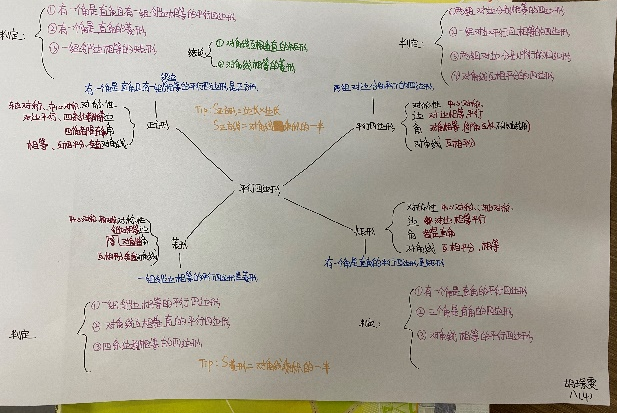 判定:
①有一个角是直角且有一组邻边相等的平行四边形
②有一个角是直角的菱形
③一组邻边相等的矩形
①对角线互相垂直的矩形
②对角线相等的菱形
有一个角是直角且有一组邻边相等的平行四边形是正方形
Tip:
S正方形=对角线乘积的一半
正方形
轴对称、中心对称 对称性
对边平行、四条边相等 边
四个角都是直角 角
相等、互相平分、垂直 对角线
判定:
①两组对边分别相等的四边形
②一组对边平行且相等的四边形
③两组对边分别平行的四边形
④对角线互相平分的四边形
两组对边分别平行的四边形
平行四边形
对称性 中心对称
边 对边相等,平行
角 对角相等
对角线 互相平分
平行四边形
菱形
对称性
互相平分 垂直 对角线
一组邻边相等的平行四边形是菱形
判定:
①一组邻边相等的平行四边形
②对角线互相垂直的平行四边形
③四条边都相等的四边形
Tip: S菱形=对角线乘积的一半
矩形
对称性 中心对称、轴对称
边 对边相等平行
角 都是直角
对角线 互相平分、相等
有一个角是直角的平行四边形是矩形
判定:
①有一个角是直角的平行四边形
②三个角是直角的四边形
③对角线相等的平行四边形
八(4)